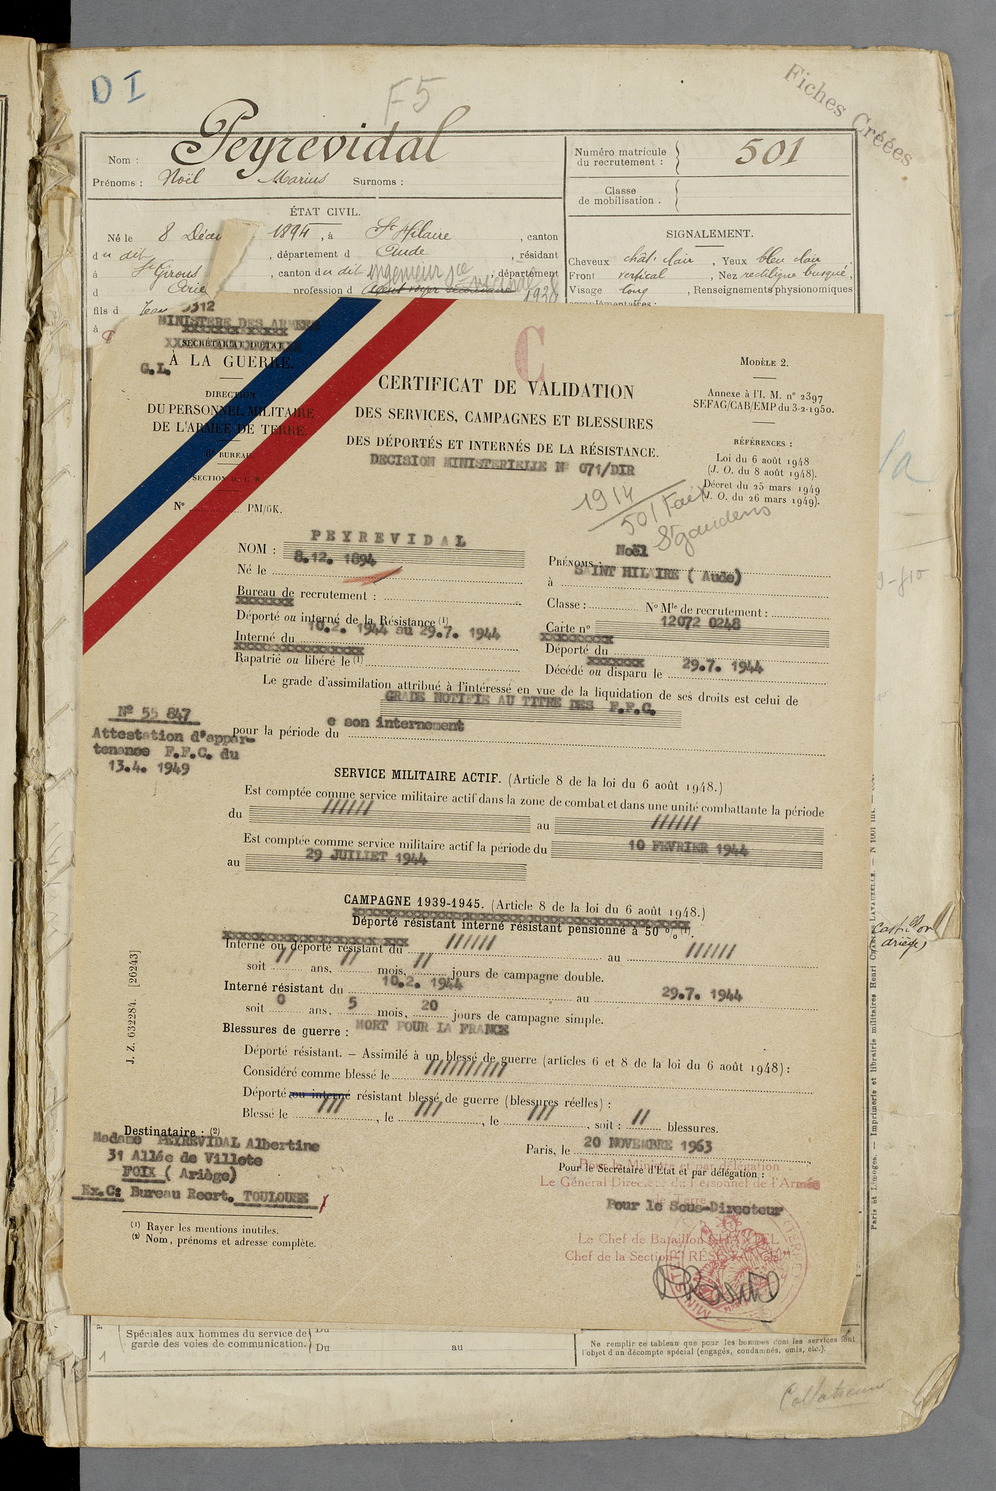 D I
F5
Fiches Créées
Nom : Peyrevidal
Prénoms : Noël Marius Surnoms :
Numéro matricule du recrutement : 501
Classe de mobilisation :
ÉTAT CIVIL.
Né le 8 1894, à St Hilaire, canton
du dit, département d Aude, résidant
à St Girons, canton du dit, département
d profession d ingénieur 1938
fils d Jean
à
SIGNALEMENT.
Cheveux chât. clair, Yeux bleu clair
Front vertical, Nez rectiligne busqué.
Visage long, Renseignements physionomiques
3312
MINISTERE DES ARMEES
SECRÉTARIAT D'ÉTAT
À LA GUERRE.
G.I.
DIRECTION
DU PERSONNEL MILITAIRE
DE L'ARMÉE DE TERRE.
BUREAU
SECTION
N° PM/6K.
C
CERTIFICAT DE VALIDATION
DES SERVICES, CAMPAGNES ET BLESSURES
DES DÉPORTÉS ET INTERNÉS DE LA RÉSISTANCE.
DECISION MINISTERIELLE N° 071/DIR
MODÈLE 2.
Annexe à l'I. M. n° 2397
SEFAG/CAB/EMP du 3-2-1950.
RÉFÉRENCES :
Loi du 6 août 1948
(J. O. du 8 août 1948).
Décret du 25 mars 1949
(J. O. du 26 mars 1949).
1914
501 Foix
St gaudens
NOM : PEYREVIDAL
PRÉNOMS : Noël
Né le 8.12. 1894
à SAINT HILAIRE ( Aude)
Bureau de recrutement :
Classe : N° Mle de recrutement :
Déporté ou interné de la Résistance (1)
Carte n° 12072 0248
Interné du 10.2. 1944 au 29.7. 1944
Déporté du
Rapatrié ou libéré le (1)
Décédé ou disparu le 29.7. 1944
Le grade d'assimilation attribué à l'intéressé en vue de la liquidation de ses droits est celui de
GRADE NOTIFIE AU TITRE DES F.F.C.
pour la période du e son internement
N° 55 847
Attestation d'appar-
tenance F.F.C. du
13.4. 1949
SERVICE MILITAIRE ACTIF. (Article 8 de la loi du 6 août 1948.)
Est comptée comme service militaire actif dans la zone de combat et dans une unité combattante la période
du ////// au //////
Est comptée comme service militaire actif la période du 10 FEVRIER 1944
au 29 JUILLET 1944
CAMPAGNE 1939-1945. (Article 8 de la loi du 6 août 1948.)
Déporté résistant interné résistant pensionné à 50 %
Interné ou déporté résistant du ////// au //////
soit // ans, // mois, // jours de campagne double.
Interné résistant du 10.2. 1944 au 29.7. 1944
soit 0 ans, 5 mois, 20 jours de campagne simple.
Blessures de guerre : MORT POUR LA FRANCE
Déporté résistant. — Assimilé à un blessé de guerre (articles 6 et 8 de la loi du 6 août 1948) :
Considéré comme blessé le //////////
Déporté ou interné résistant blessé de guerre (blessures réelles) :
Blessé le ///, le ///, le ///, soit : // blessures.
J. Z. 632284. [26243]
Destinataire : (2)
Madame PEYREVIDAL Albertine
31 Allée de Villote
FOIX ( Ariège)
Ex.C: Bureau Recrt. TOULOUSE
(1) Rayer les mentions inutiles.
(2) Nom, prénoms et adresse complète.
Paris, le 20 NOVEMBRE 1963
Pour le Ministre et par délégation
Pour le Secrétaire d'État et par délégation :
Le Général Directeur du Personnel de l'Armée
de Terre
Pour le Sous-Directeur
Le Chef de Bataillon
Chef de la Section "RÉSISTANCE"
Castillon
ariège)
Paris et Limoges. — Imprimerie et librairie militaires Henri CHARLES-LAVAUZELLE.
Spéciales aux hommes du service de garde des voies de communication. Du
Du au
1
Ne remplir ce tableau que pour les hommes dont les services font
l'objet d'un décompte spécial (engagés, condamnés, omis, etc.).